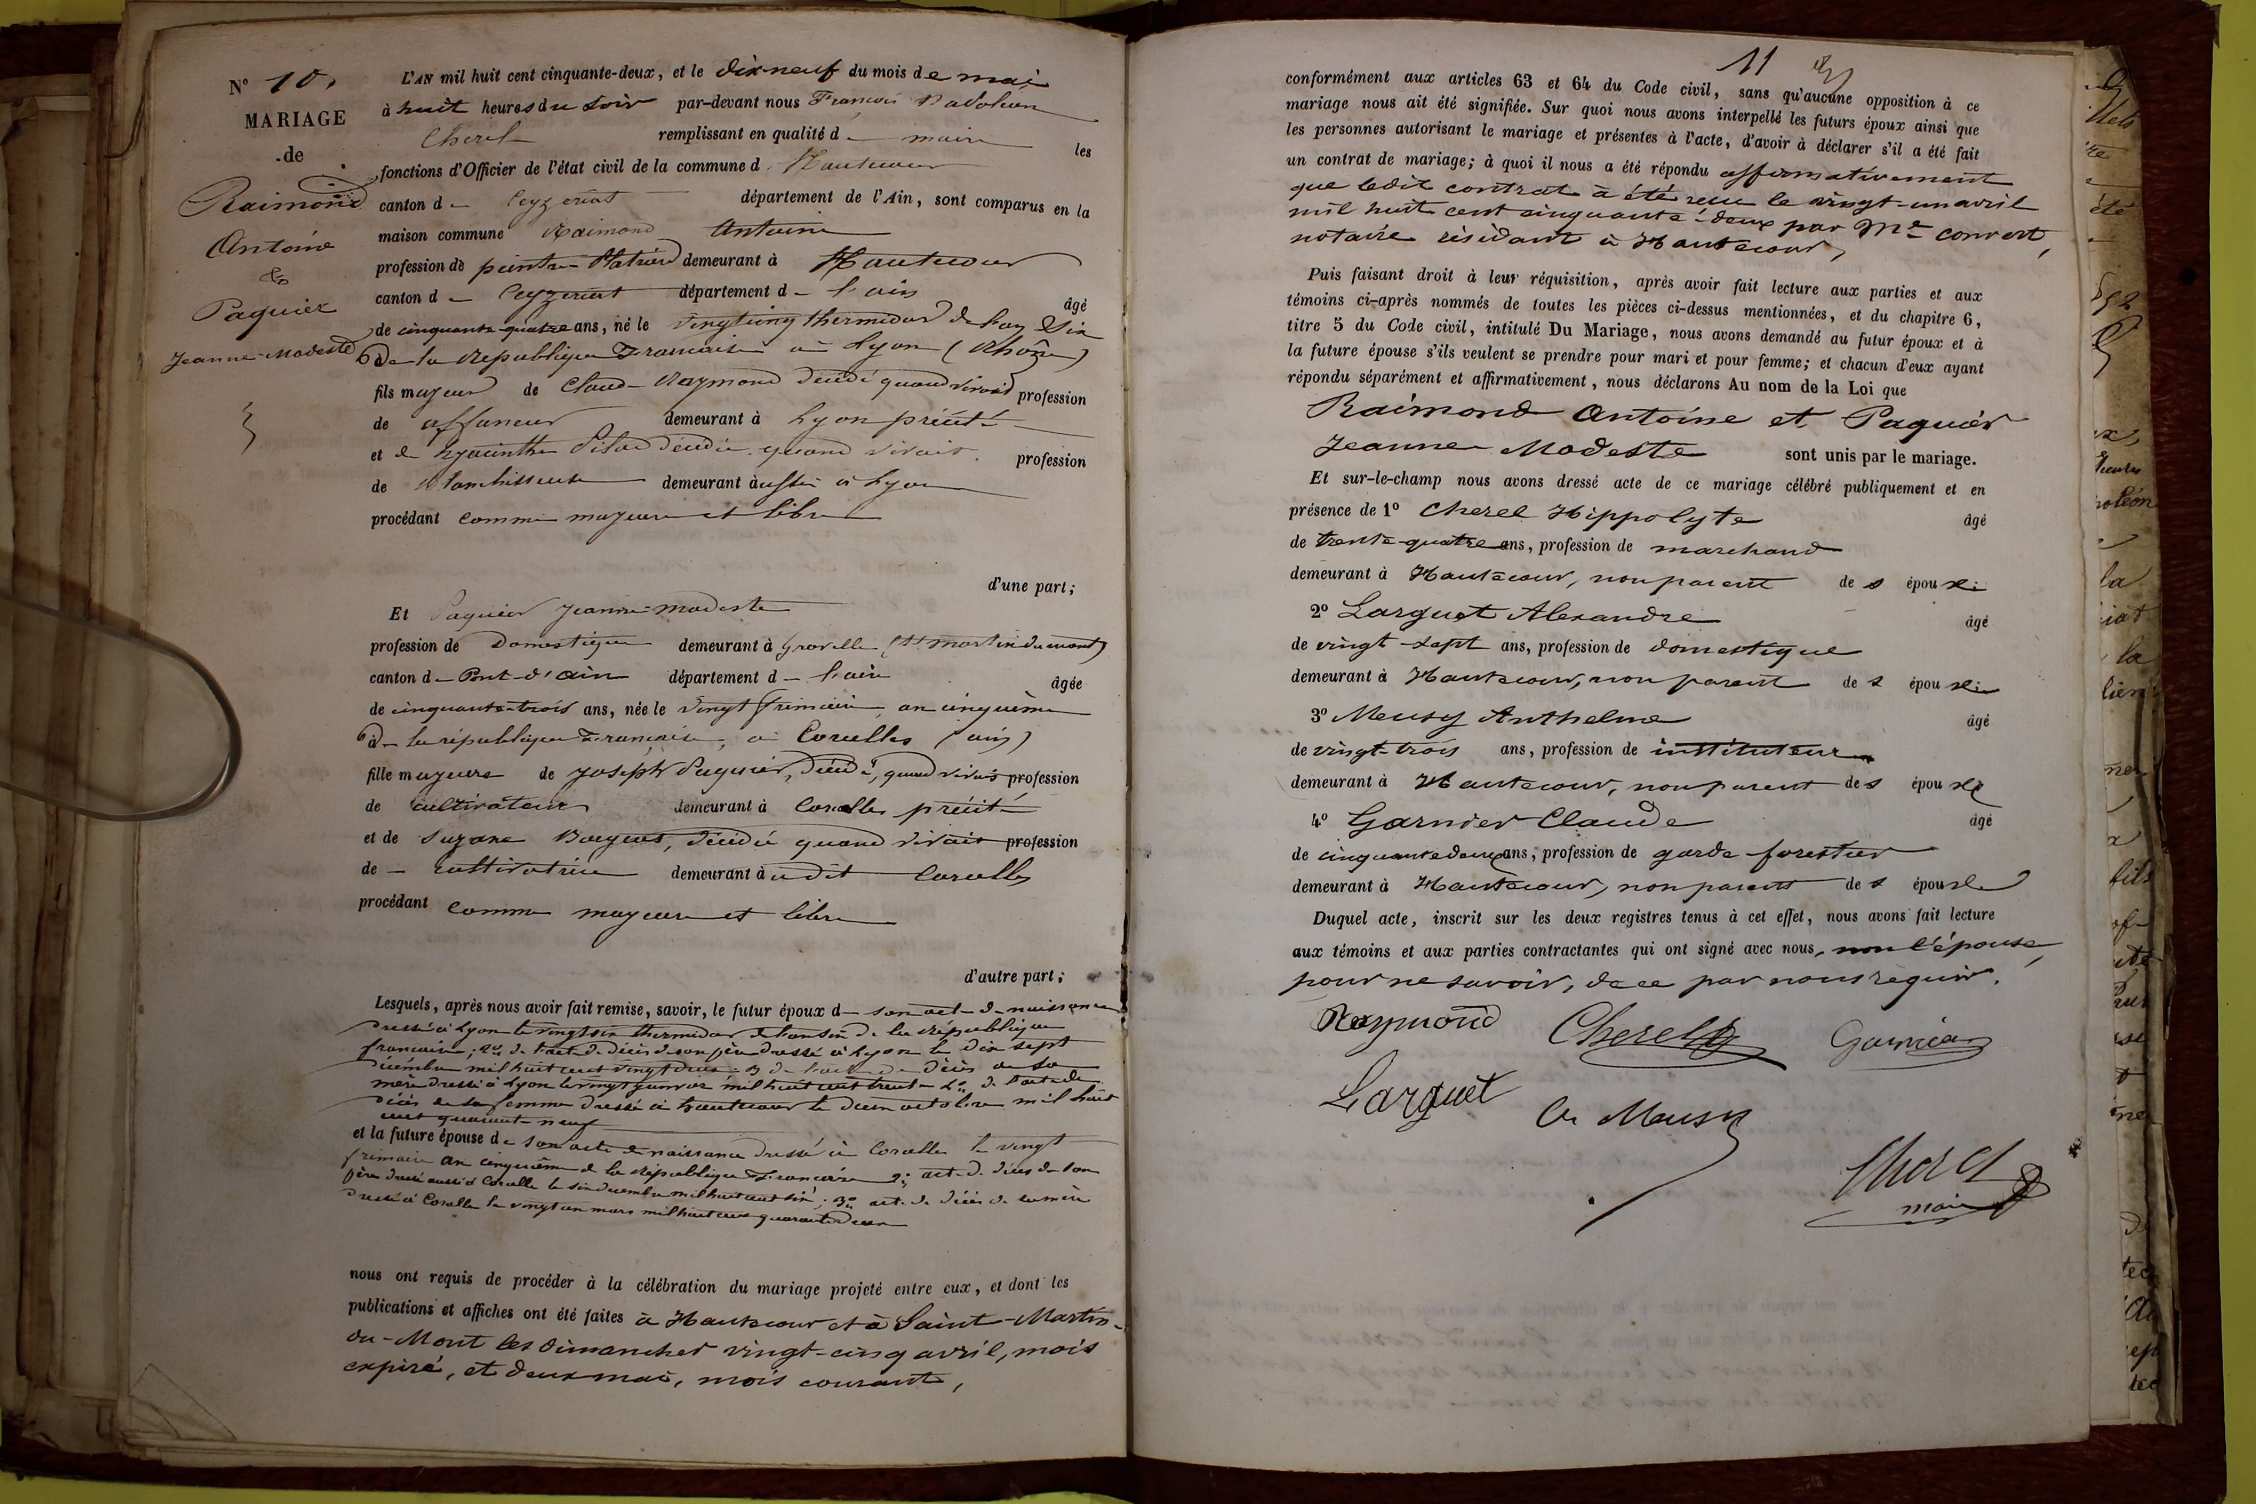 N° 10.
MARIAGE
de
Raimond
Antoine
&
Paquier
Jeanne-Modeste
L'AN mil huit cent cinquante-deux, et le dix neuf du mois de mai
à huit heures du soir par-devant nous François
Cherel remplissant en qualité de maire les
fonctions d'Officier de l'état civil de la commune d Hautecour
canton d Ceyzeriat département de l'Ain, sont comparus en la
maison commune Raimond Antoine
profession de peintre-Platrier demeurant à Hautecour
canton d Ceyzeriat département d l'ain âgé
de cinquante-quatre ans, né le vingt cinq thermidor de l'an Six
de la République Française à Lyon (Rhône)
fils majeur de Claude Raymond décédé quand vivait profession
de affaneur demeurant à Lyon précité
et de hyacinthe décédée quand vivait profession
de blanchisseuse demeurant aussi à Lyon
procédant comme majeur et libre
d'une part;
Et Paquier Jeanne-modeste
profession de Domestique demeurant à Gravelle (St martin du mont)
canton d Pont-d'ain département d l'ain âgée
de cinquante-trois ans, née le vingt frimaire an cinquième
de la république Française, à Corcelles (ain)
fille majeure de Joseph Paquier, décédé, quand vivait profession
de cultivateur demeurant à Corcelles précité
et de Suzane décédée quand vivait profession
de cultivatrice demeurant à udit Corcelles
procédant comme majeure et libre
d'autre part;
Lesquels, après nous avoir fait remise, savoir, le futur époux d son acte de naissance
dressé à Lyon le vingt six thermidor de l'an six de la République
française; 2° de l'acte de décès de son père dressé à Lyon le dix sept
décembre mil huit cent vingt deux 3 de l'acte de décès de sa
mère dressé à Lyon le vingt janvier mil huit cent trente 4° de l'acte de
décès de sa femme dressé à hautecour le deux octobre mil huit
cent quarante-neuf
et la future épouse de son acte de naissance dressé à Corcelles le vingt
frimaire an cinquième de la République Française 2° acte de décès de son
père dressé aussi à Corcelle le six décembre mil huit cent six; 3° acte de décès de sa mère
dressé à Corcelle le vingt un mars mil huit cent quarante deux
nous ont requis de procéder à la célébration du mariage projeté entre eux, et dont les
publications et affiches ont été faites à Hautecour et à Saint-Martin-
du-Mont les dimanches vingt-cinq avril, mois
expiré, et deux mai, mois courant,
11
conformément aux articles 63 et 64 du Code civil, sans qu'aucune opposition à ce
mariage nous ait été signifiée. Sur quoi nous avons interpellé les futurs époux ainsi que
les personnes autorisant le mariage et présentes à l'acte, d'avoir à déclarer s'il a été fait
un contrat de mariage; à quoi il nous a été répondu affirmativement
que ledit contrat à été reçu le vingt-un avril
mil huit cent cinquante-deux par Me convert,
notaire résidant à Hautecour,
Puis faisant droit à leur réquisition, après avoir fait lecture aux parties et aux
témoins ci-après nommés de toutes les pièces ci-dessus mentionnées, et du chapitre 6,
titre 5 du Code civil, intitulé Du Mariage, nous avons demandé au futur époux et à
la future épouse s'ils veulent se prendre pour mari et pour femme; et chacun d'eux ayant
répondu séparément et affirmativement, nous déclarons Au nom de la Loi que
Raimond Antoine et Paquier
Jeanne Modeste sont unis par le mariage.
Et sur-le-champ nous avons dressé acte de ce mariage célébré publiquement et en
présence de 1° Cherel Hippolyte âgé
de trente-quatre ans, profession de marchand
demeurant à Hautecour, non parent des époux
2° Larguet Alexandre âgé
de vingt-sept ans, profession de domestique
demeurant à Hautecour, non parent des époux
3° Meusy Anthelme âgé
de vingt-trois ans, profession de instituteur
demeurant à Hautecour, non parent des époux
4° Garnier Claude âgé
de cinquante deux ans, profession de garde-forestier
demeurant à Hautecour, non parent des époux
Duquel acte, inscrit sur les deux registres tenus à cet effet, nous avons fait lecture
aux témoins et aux parties contractantes qui ont signé avec nous, non l'épouse,
pour ne savoir, de ce par nous requise.
Raymond Cherel Garnier
Larguet Meusy
Cherel
maire